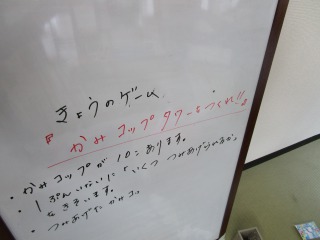 きょうのゲーム
『かみコップタワーをつくれ!!』
・かみコップが10こあります。
・1ぷんいないに、いくつ つみあげられるか。
をきそいます。
・つみあげた かみコッ